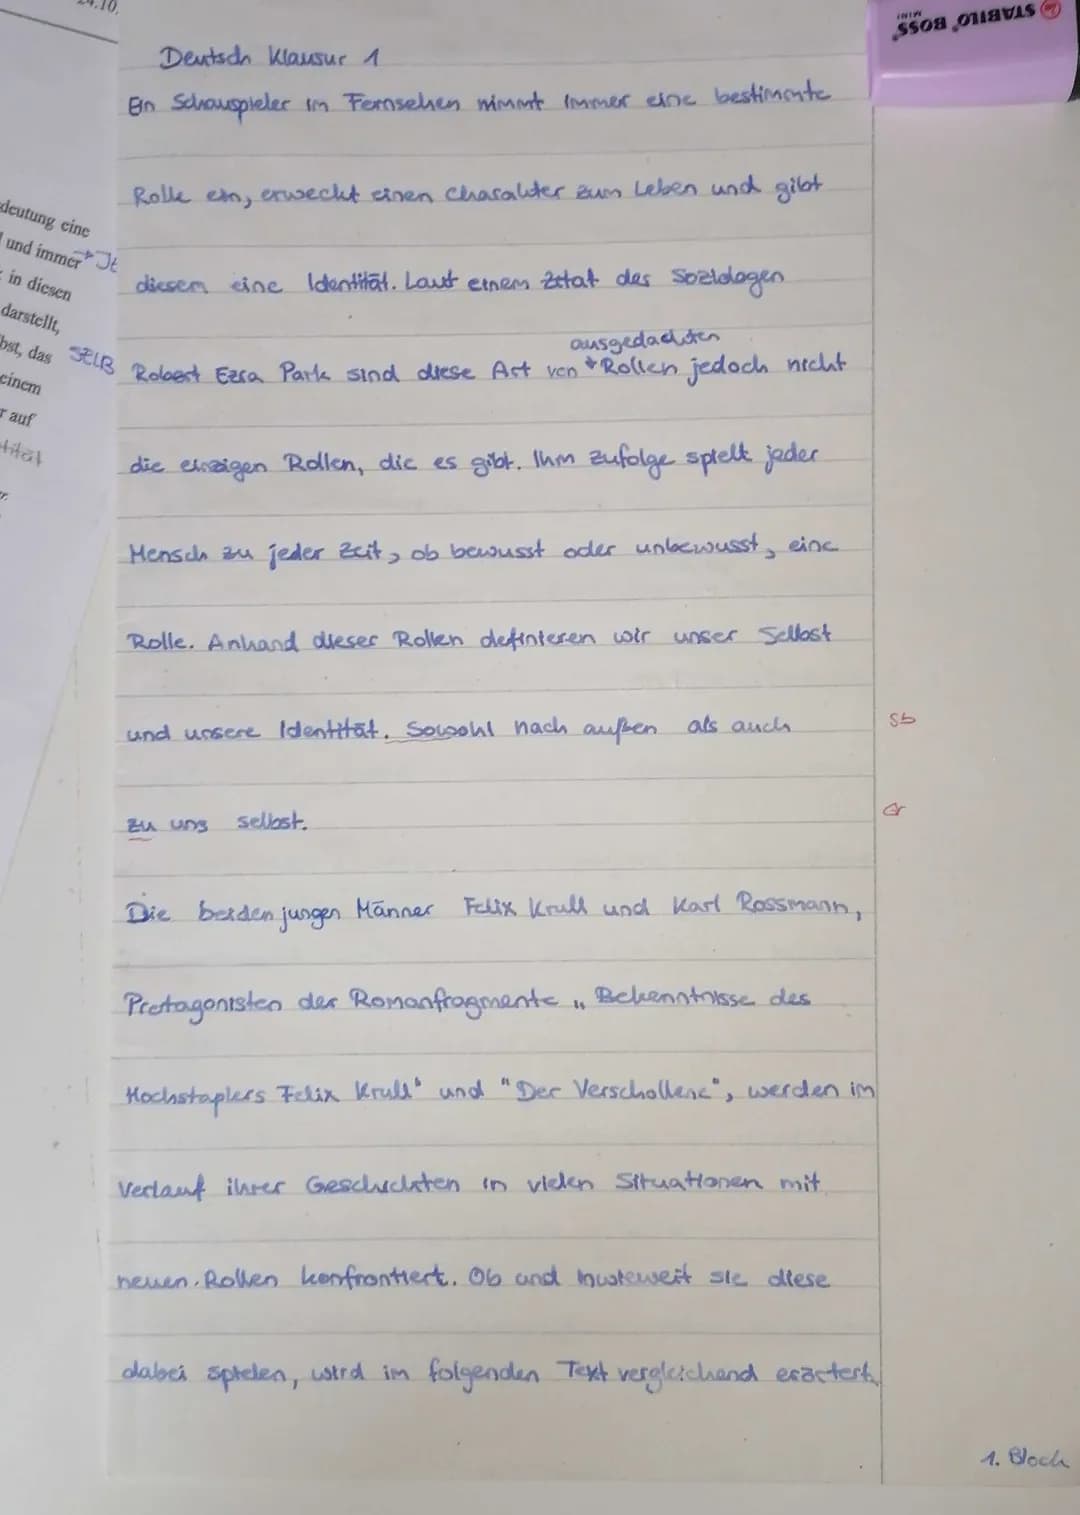 24.10.
STABILO BOSS
MINI
deutung eine
und immer
in diesen
darstellt,
bst, das SELB
einem
r auf
tität
Deutsch Klausur 1
Ein Schauspieler im Fernsehen nimmt immer eine bestimmte
Rolle ein, erweckt einen Charakter zum Leben und gibt
diesem eine Identität. Laut einem Zitat des Soziologen
ausgedachten
Robert Ezra Park sind diese Art von Rollen jedoch nicht
die einzigen Rollen, die es gibt. Ihm zufolge spielt jeder
Mensch zu jeder Zeit, ob bewusst oder unbewusst, eine
Rolle. Anhand dieser Rollen definieren wir unser Selbst
und unsere Identität. Sowohl nach außen als auch Sb
zu uns selbst. Gr
Die beiden jungen Männer Felix Krull und Karl Rossmann,
Protagonisten der Romanfragmente „Bekenntnisse des
Hochstaplers Felix Krull" und "Der Verschollene", werden im
Verlauf ihrer Geschichten in vielen Situationen mit
neuen Rollen konfrontiert. Ob und inwieweit sie diese
dabei spielen, wird im folgenden Text vergleichend erörtert.
1. Block